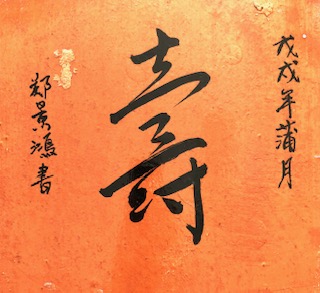 戊戌年蒲月
壽
鄭景鴻書